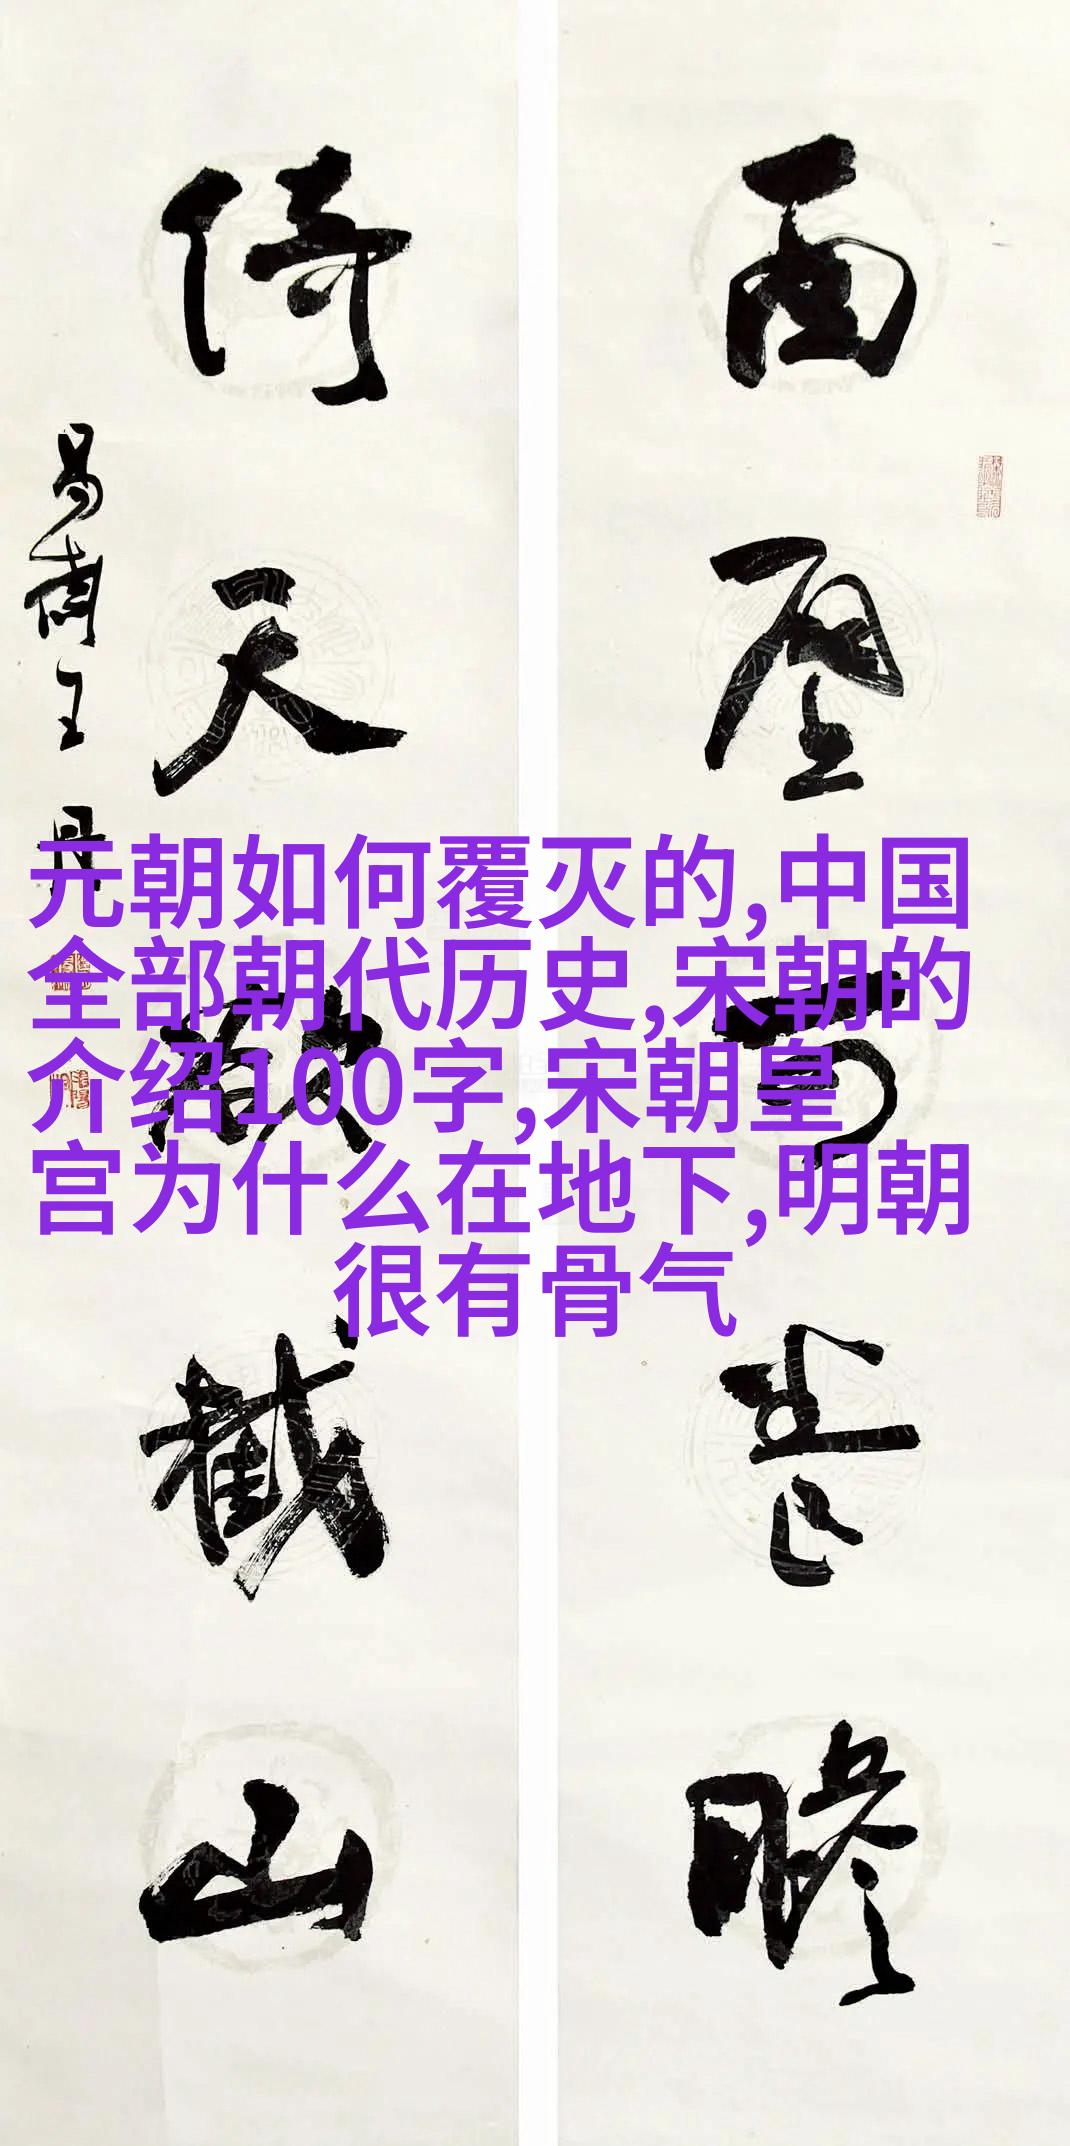 面壁瞻
倚天截山
元朝如何覆灭的,中国
全部朝代历史,宋朝的
介绍100字,宋朝皇
宫为什么在地下,明朝
很有骨气